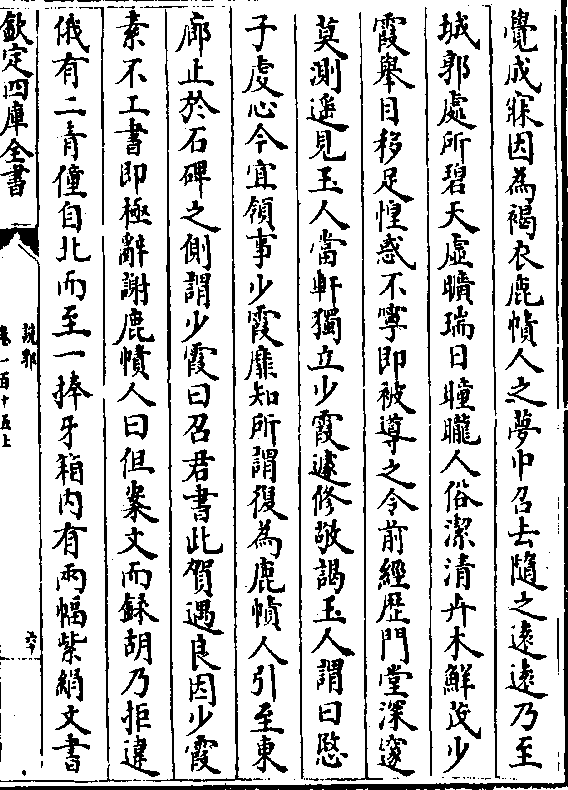 覺成寐因為褐衣鹿幘人之夢中召去隨之遠遠乃至
城郭處所碧天虛曠瑞日曈曨人俗潔清卉木鮮茂少
霞舉目移足惶惑不寧即被導之令前經歴門堂深邃
莫測遥見玉人當軒獨立少霞遽修敬謁玉人謂曰愍
子虔心今宜領事少霞靡知所謂復為鹿幘人引至東
廊止於石碑之側謂少霞曰召君書此賀遇良因少霞
素不工書即極辭謝鹿幘人曰但案文而録胡乃拒違
俄有二青僮自北而至一捧牙箱内有兩幅紫絹文書
欽定四庫全書
說郛
卷一百十五上
六十